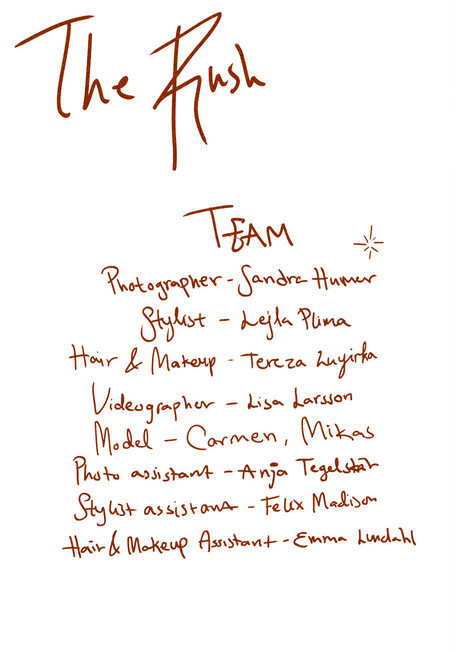 The Rush
TEAM
Photographer - Sandra Humer
Stylist - Lejla Plima
Hair & Makeup - Tereza
Videographer - Lisa Larsson
Model - Carmen, Mikas
Photo assistant - Anja
Stylist assistant - Felix Madison
Hair & Makeup Assistant - Emma Lundahl